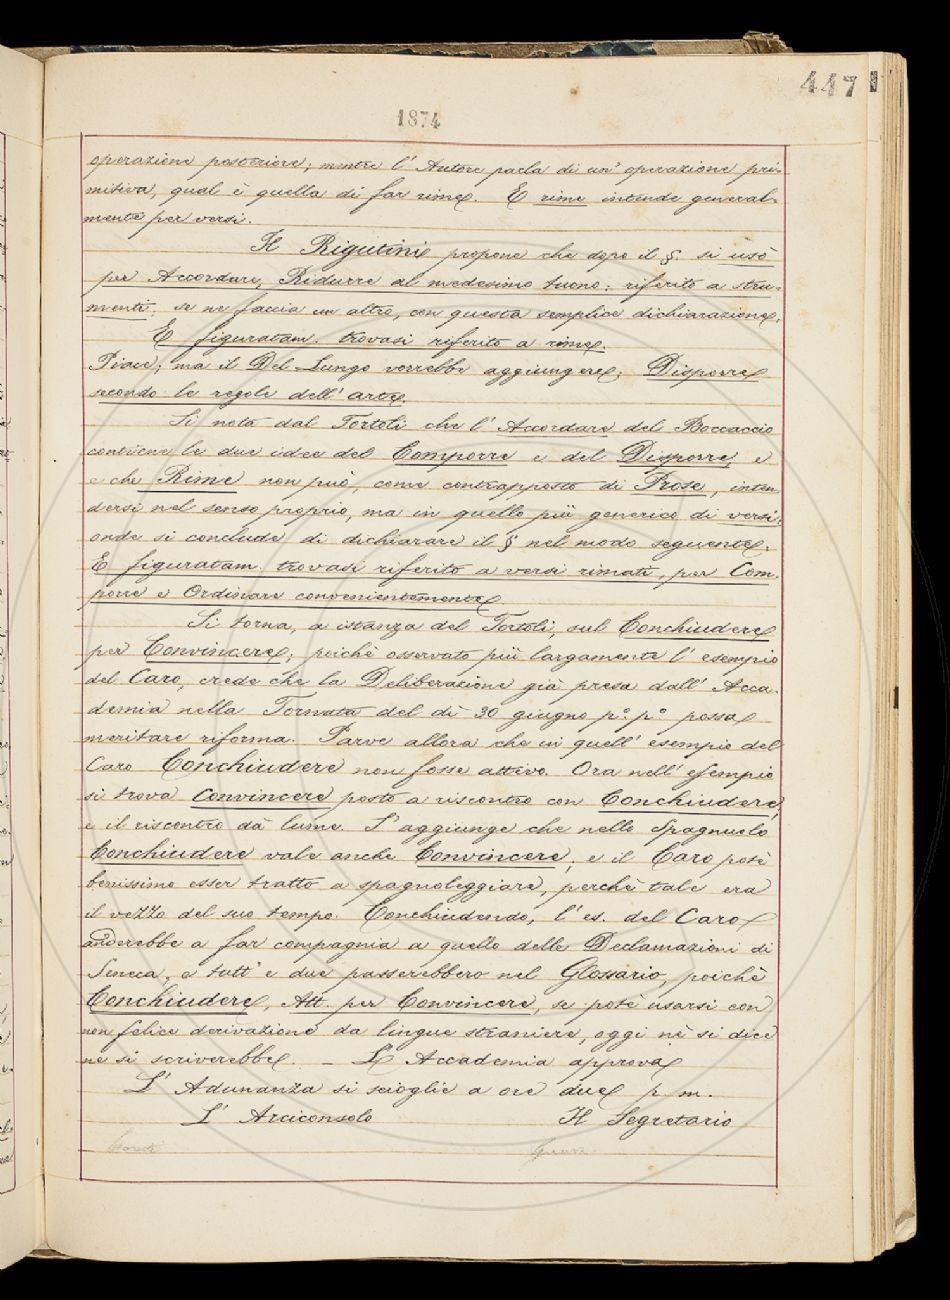 447
1874
operazione posteriore; mentre l' Autore parla di un' operazione pri-
mitiva, qual è quella di far rime. E rime intende general-
mente per versi.
Il Rigutini propone che dopo il §. si usò
per Accordare, Ridurre al medesimo tuono; riferito a stru-
menti, se ne faccia un altro, con questa semplice dichiarazione.
E figuratam. trovasi riferito a rime.
Piace; ma il Del Lungo vorrebbe aggiungere; Disporre
secondo le regole dell' arte.
Si nota dal Tortoli che l' Accordare del Boccaccio
contiene le due idee del Comporre e del Disporre, e
e che Rime non può, come contrapposto di Prose, inten-
dersi nel senso proprio, ma in quello più generico di versi:
onde si conclude di dichiarare il § nel modo seguente.
E figuratam. trovasi riferito a versi rimati, per Com-
porre e Ordinare convenientemente.
Si torna, a istanza del Tortoli, sul Conchiudere
per Convincere; poichè osservato più largamente l' esempio
del Caro, crede che la Deliberazione già presa dall' Acca-
demia nella Tornata del dì 30 giugno p.º p.º possa
meritare riforma. Parve allora che in quell' esempio del
Caro Conchiudere non fosse attivo. Ora nell' esempio
si trova Convincere posto a riscontro con Conchiudere,
e il riscontro dà lume. S' aggiunge che nello Spagnuolo
Conchiudere vale anche Convincere, e il Caro potè
benissimo esser tratto a spagnoleggiare, perchè tale era
il vezzo del suo tempo. Conchiudendo, l' es. del Caro
anderebbe a far compagnia a quello delle Declamazioni di
Seneca, e tutt' e due passerebbero nel Glossario, poichè
Conchiudere, Att. per Convincere, se potè usarsi con
non felice derivazione da lingue straniere, oggi nè si dice
nè si scriverebbe. L' Accademia approva
L' Adunanza si scioglie a ore due p. m.
L' Arciconsolo Il Segretario